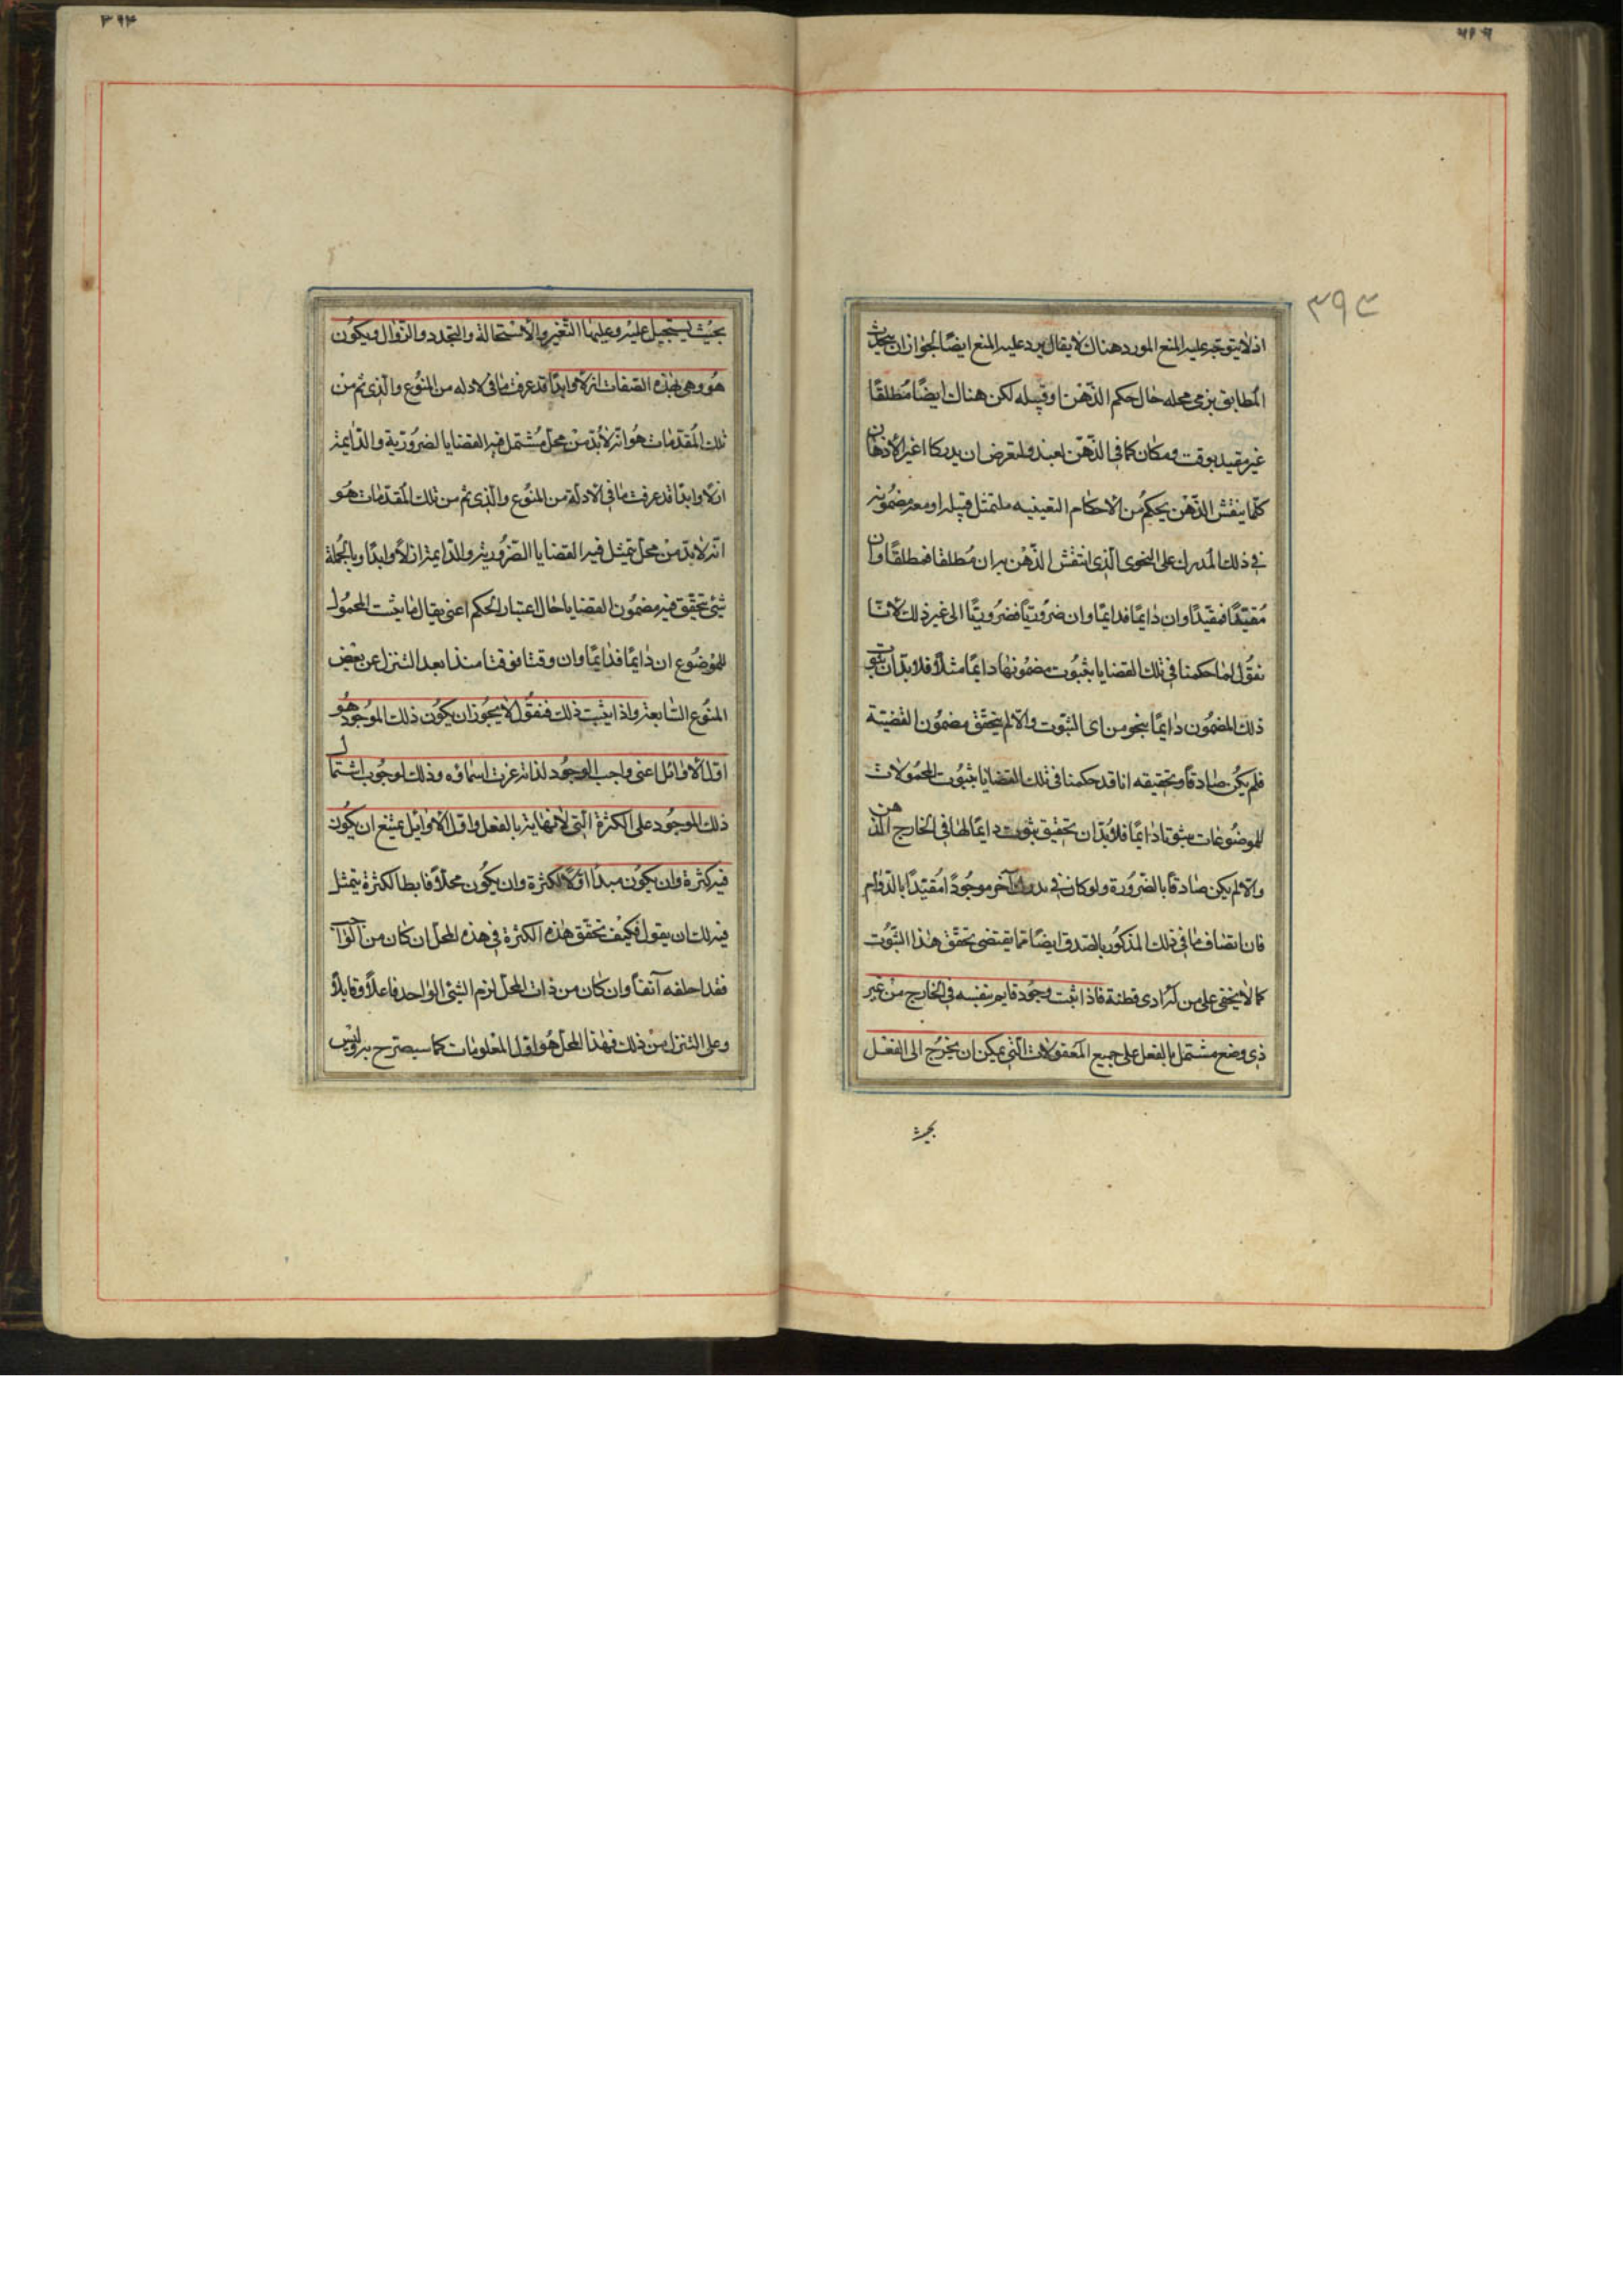 ٣٩٣
اذ لا يتوجه عليه المنع المورد هناك لا يقال يرد عليه المنع ايضًا لجواز ان يحدث
المطابق بزمى محله حال حكم الذهن او قبيله لكن هناك ايضًا مُطلقًا
غير مقيد بوقت ومكان كما فى الذهن لعبد ولتعرض ان يدركا اغير الاذهان
كلّما ينقش الذهن بحكم من الاحكام اليقينيه ملتمثل قبيله او معه مضمُونه
فى ذلك المدرك على النحوى الذى انتقش الذهن به ان مُطلقا فمطلقًا وان
مُقيّدًا فمقيّدًا وان دايمًا فدايمًا وان ضروريًا فضرُوريًا الى غير ذلك لانّا
نقول لما حكمنا فى تلك القضايا بثبُوت مضمُونها دايمًا مثلًا فلا بدّ ان يثبو
ذلك المضمون دايمًا بنحو من اى الثبوت والّا لم يتحقّق مضمُون القضيّة
فلم يكن صادقًا وتحقيقه انا قد حكمنا فى تلك القضايا بثبُوت المحمُولات
للموضُوعات ثبوتا دايمًا فلا بُدّ ان تحقيق ثبوت دايمًا لها فى الخارج الذهن
والّا لم يكن صادقًا بالضرُورة ولو كان فى مدرك آخر موجُودًا مُقيّدًا بالدّوام
فان اتصاف ما فى ذلك المذكور بالصّدق ايضًا مما يقتضى تحقّق هذا الثبُوت
كما لا يخفى على من له ادى فطنة فاذا ثبت وجُود قايم بنفسه فى الخارج من غير
ذى وضع مشتمل بالفعل على جميع المعقولات التى يمكن ان يخرج الى الفعل
بحيث
٣٩٤
بحيث يستحيل عليه وعليها التغير والاستحالة والتجدد والزوال ويكون
هُو وهى بهذه الصفات ازلًا وابدًا قد عرفت ما فى الادله من المنُوع والذى تم من
تلك المُقدّمات هُو انه لابُدّ من محل مُشتمل فيه القضايا الضرُورية والدايمه
ازلا وابدًا قد عرفت ما فى الادلة من المنُوع والذى تم من تلك المُقدّمات هُو
انه لابد من محل يتمثل فيه القضايا الضّرُوريّه والدّايمة ازلًا وابدًا وبالجُملة
شئ تحقّق فيه مضمُون القضايا حال اعتبار الحكم اعنى يقال ما يثبت المحمُول
للموضُوع ان دايمًا فدايمًا وان وقتا فوقتا منذا بعد التنزل عن بعض
المنُوع السّابعة واذا يثبت ذلك فنقُول لا يجُوز ان يكُون ذلك المُوجُود هُو
اول الاوائل اعنى واجب الوجُود لذاته عزت اسماؤه وذلك لوجُوب اشتمال
ذلك الموجُود على الكثرة التى لا نهاية بالفعل واول الاوايل يمتنع ان يكُون
فيه كثرة وان يكُون مبدا اولًا للكثرة وان يكُون محلًا قابطا لكثرة يتمثل
فيه لك ان يقول فكيف تحقّق هذه الكثرة فى هذه المحل ان كان من آلوَا
فقد احلفه آنفاً وان كان من ذات المحل لزم الشئ الواحد فاعلًا وقابلًا
وعلى التنزل من ذلك فهذا المحل هُو اول المعلومات كما سيصرّح به وليس